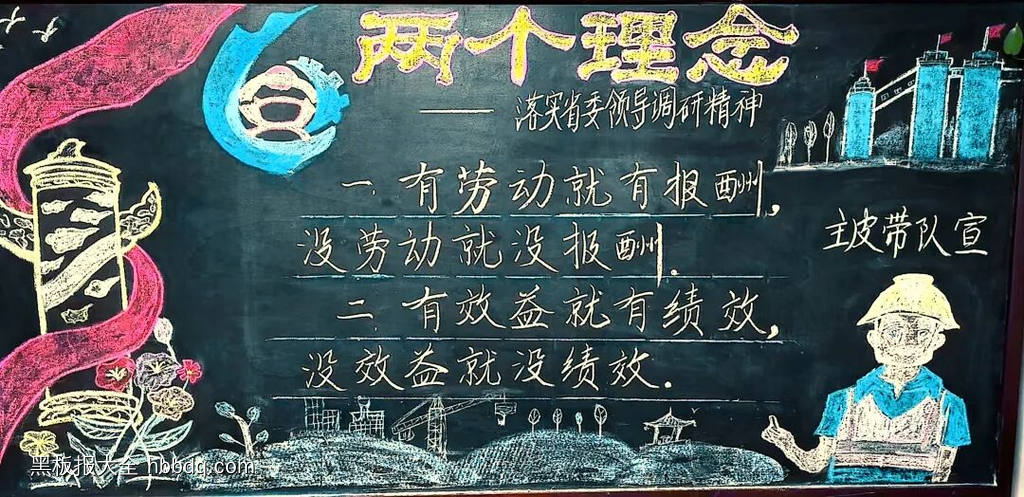 两个理念
——落实省委领导调研精神
一.有劳动就有报酬,
没劳动就没报酬.
二.有效益就有绩效,
没效益就没绩效.
主皮带队宣
黑板报大全 hbbdq.com